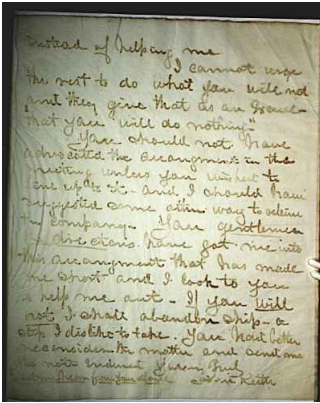 instead of helping me
I cannot urge
the rest to do what you will not
and they give that as an
that you will do nothing"
You should not have
advocated the arrangment in the
meeting unless you wished to
live up to it - and I should have
suggested some other way to relieve
the company - You gentlemen
directors have got me into
this arrangment that has made
me short and I look to you
to help me out - If you will
not I shall abandon ship - a
step I dislike to take. You had better
reconsider the matter and send me
the note indorsed
Keith